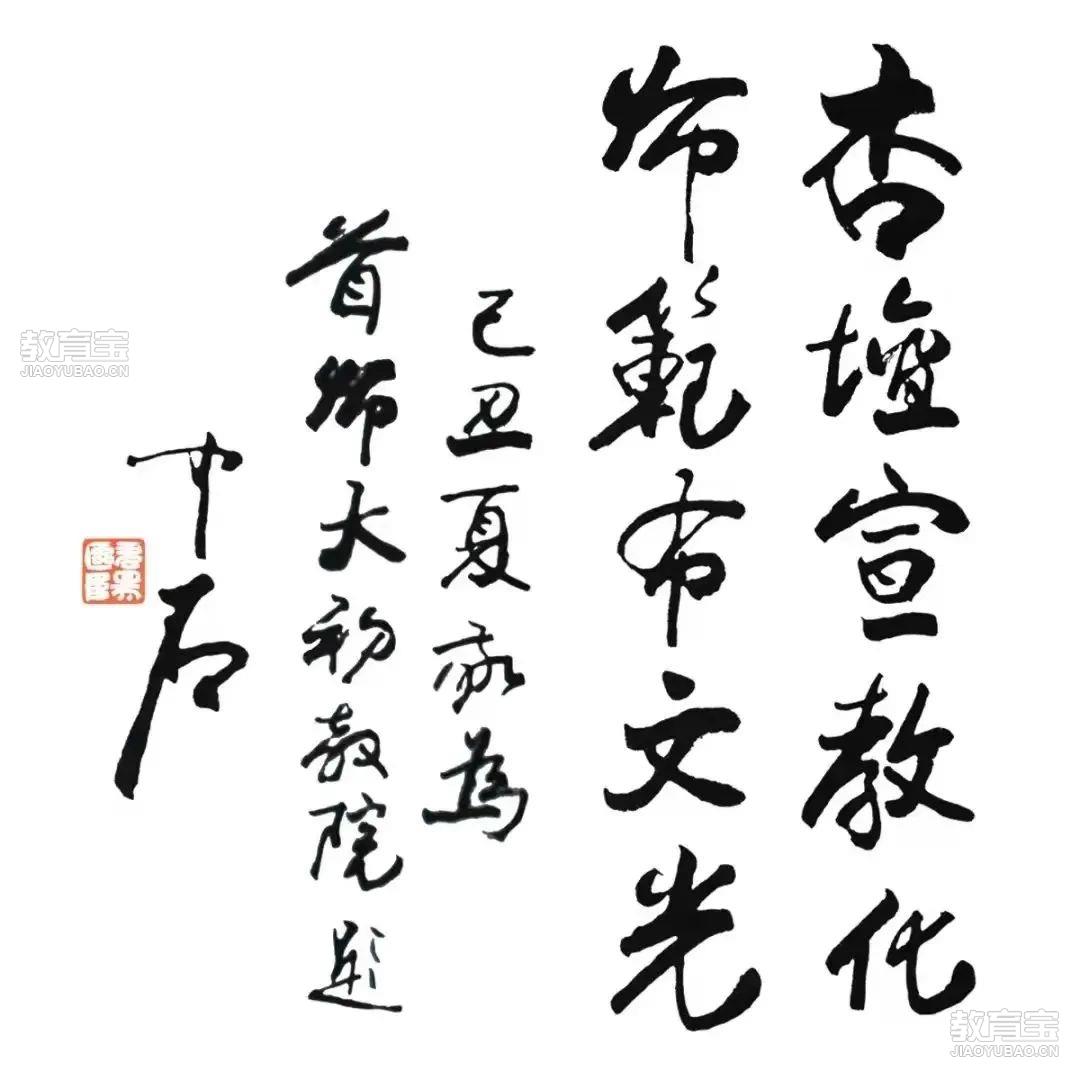 杏壇宣教化
师範布文光
己丑夏敬為
首师大初教院題
中石
教育宝
JIAOYUBAO.CN
教育宝
JIAOYUBAO.CN